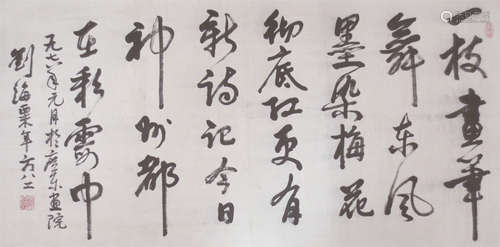 枝畫筆
舞东风
墨染梅花
彻底红更有
新诗记今日
神州都
在彩霞中
一九七六年元月於广东画院
劉海粟年方八二